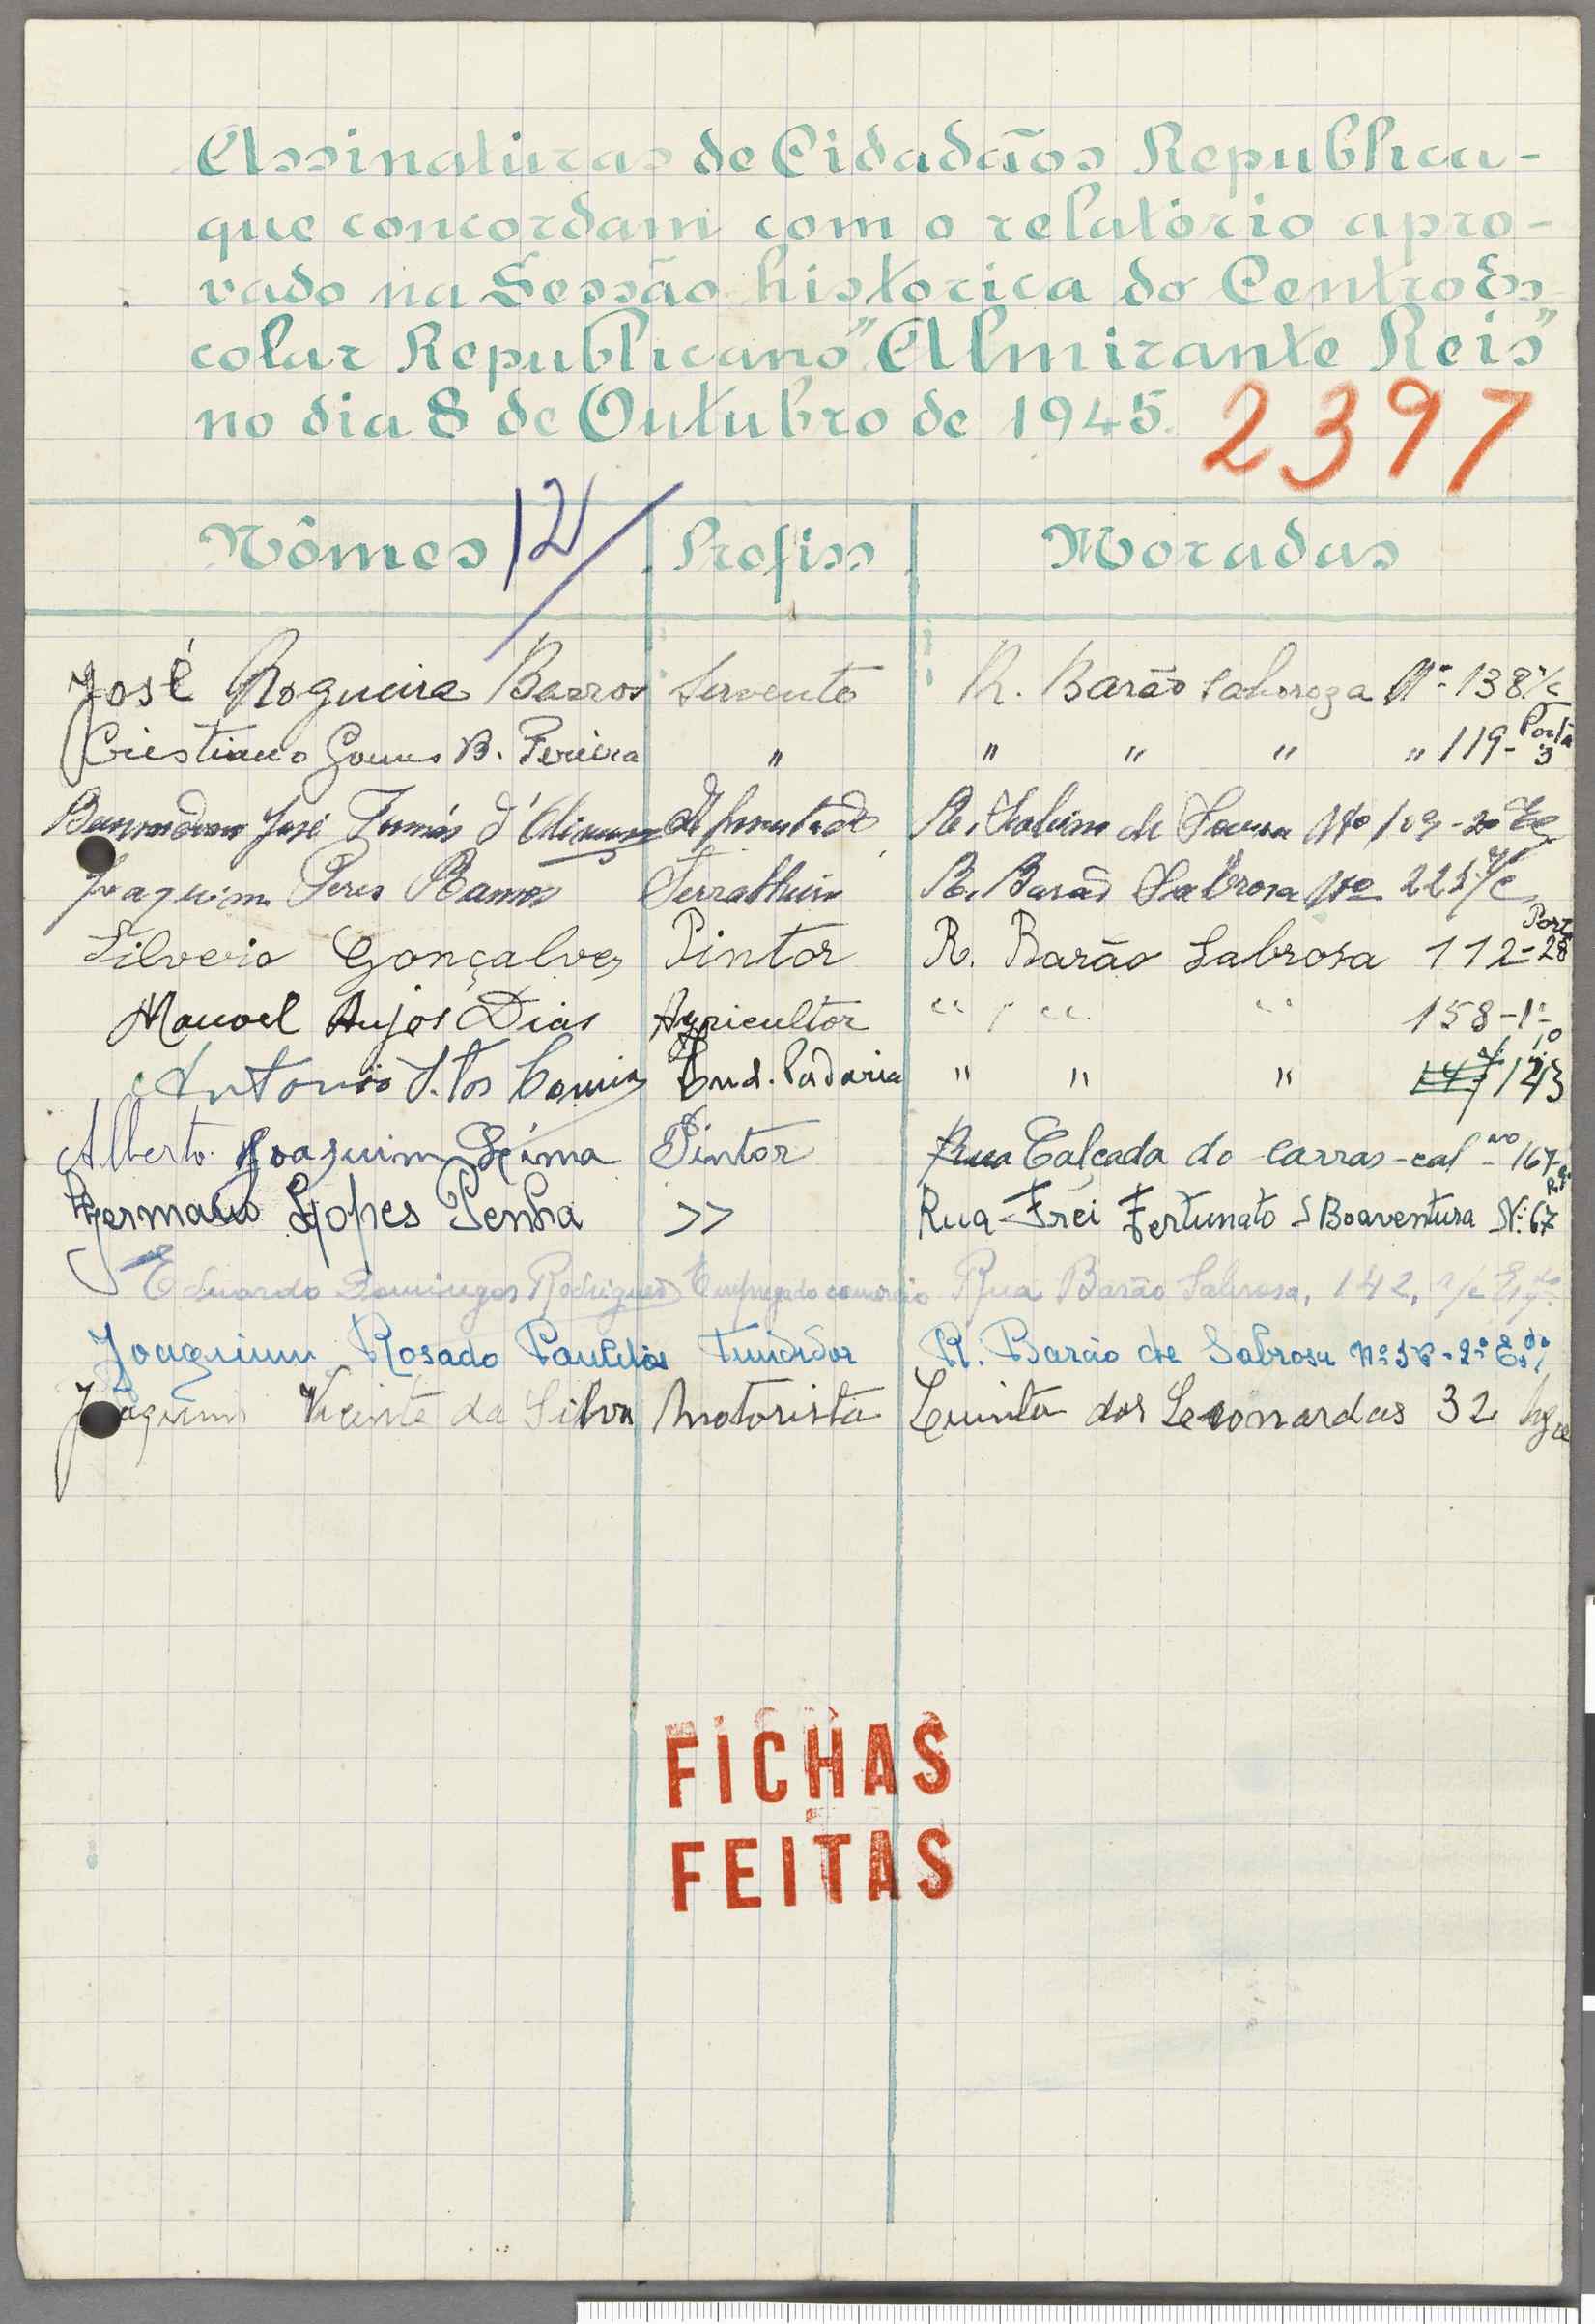 Assinaturas de Cidadãos Republica-
que concordam com o relatório apro-
vado na Sessão historica do Centro Es-
colar Republicano "Almirante Reis"
no dia 8 de Outubro de 1945.
2397
Nômes 12/ Profiss Moradas
José Nogueira Barros Servente R. Barão Saboroza Nº 138 r/c
Cristiano Gomes B. Pereira " " " " " 119- Porta 3
José Tomás d' R. Sabino de Sousa Nº 109-2º
Joaquim Peres Ramos Serralheiro R. Barão Sabrosa Nº 225 r/c
Silverio Gonçalves Pintor R. Barão Sabrosa 112- Port 28
Manoel Anjos Dias Agricultor " " " 158-1º
Antonio Padaria " " " 143
Alberto Joaquim Lima Pintor Rua Calçada do carras-cal nº 167
Germano Lopes Penha >> Rua Frei Fertunato S Boaventura Nº 67
Eduardo Domingos Rodrigues Empregado comercio Rua Barão Sabrosa, 142, r/c Esqdo.
Joaquim Rosado Tundidor R. Barão de Sabrosa nº 2º Esdo
Joaquim Vicente da Silva Motorista Quinta dos Leonardas 32
FICHAS
FEITAS